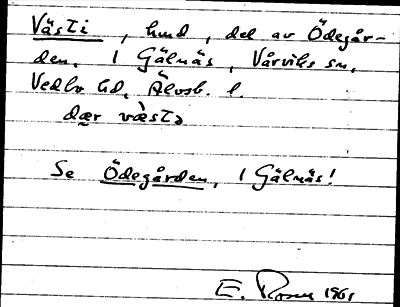 Västi, hmd, del av Ödegår-
den, 1 Gälnäs, Vårviks sn,
Vedbo hd, Älvsb. l.
dær væstɔ
Se Ödegården, 1 Gälnäs!
E. 1961